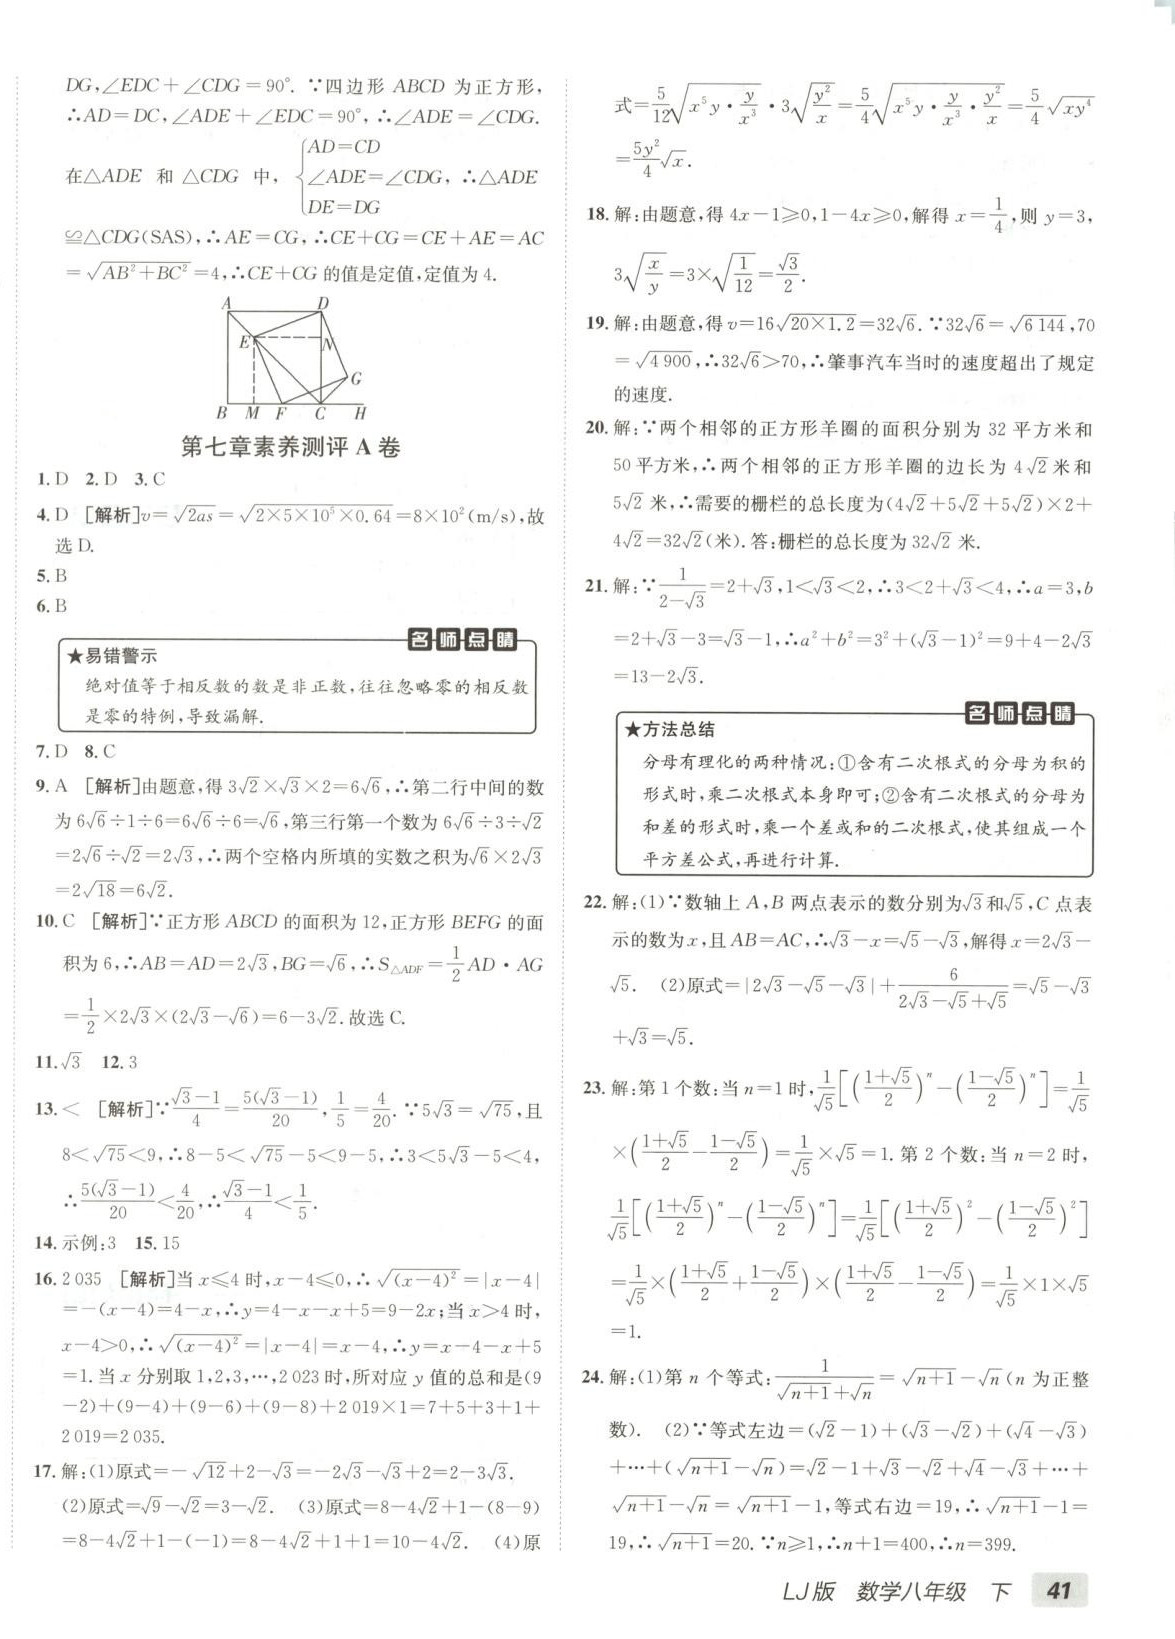 DG,∠EDC+∠CDG=90°. ∵四边形 ABCD 为正方形,
∴AD=DC,∠ADE+∠EDC=90°,∴∠ADE=∠CDG.
在△ADE 和 △CDG 中, {AD=CD
∠ADE=∠CDG, ∴△ADE
DE=DG
≌△CDG(SAS),∴AE=CG,∴CE+CG=CE+AE=AC
=√(AB²+BC²)=4,∴CE+CG 的值是定值,定值为 4.
A D
E N
G
B M F C H
第七章素养测评 A 卷
1. D 2. D 3. C
4. D [解析]v=√(2as)=√(2×5×10⁵×0.64)=8×10²(m/s),故
选 D.
5. B
6. B
名师点睛
★易错警示
绝对值等于相反数的数是非正数,往往忽略零的相反数
是零的特例,导致漏解.
7. D 8. C
9. A [解析]由题意,得 3√2×√3×2=6√6,∴第二行中间的数
为 6√6÷1÷6=6√6÷6=√6,第三行第一个数为 6√6÷3÷√2
=2√6÷√2=2√3,∴两个空格内所填的实数之积为√6×2√3
=2√18=6√2.
10. C [解析]∵正方形 ABCD 的面积为 12,正方形 BEFG 的面
积为 6,∴AB=AD=2√3,BG=√6,∴S△ADF=1/2 AD·AG
=1/2×2√3×(2√3-√6)=6-3√2.故选 C.
11. √3 12. 3
13. < [解析]∵(√3-1)/4=5(√3-1)/20,1/5=4/20.∵5√3=√75,且
8<√75<9,∴8-5<√75-5<9-5,∴3<5√3-5<4,
∴5(√3-1)/20<4/20,∴(√3-1)/4<1/5.
14. 示例:3 15. 15
16. 2 035 [解析]当 x≤4 时,x-4≤0,∴√((x-4)²)=|x-4|
=-(x-4)=4-x,∴y=4-x-x+5=9-2x;当 x>4 时,
x-4>0,∴√((x-4)²)=|x-4|=x-4,∴y=x-4-x+5
=1.当 x 分别取 1,2,3,…,2 023 时,所对应 y 值的总和是(9
-2)+(9-4)+(9-6)+(9-8)+2 019×1=7+5+3+1+
2 019=2 035.
17. 解:(1)原式=-√12+2-√3=-2√3-√3+2=2-3√3.
(2)原式=√9-√2=3-√2. (3)原式=8-4√2+1-(8-9)
=8-4√2+1-(-1)=8-4√2+1+1=10-4√2. (4)原
式=5/12√(x⁵y·y/x³)·3√(y²/x)=5/4√(x⁵y·y/x³·y²/x)=5/4√(xy⁴)
=5y²/4√x.
18. 解:由题意,得 4x-1≥0,1-4x≥0,解得 x=1/4,则 y=3,
3√(x/y)=3×√(1/12)=√3/2.
19. 解:由题意,得 v=16√(20×1.2)=32√6.∵32√6=√(6 144),70
=√(4 900),∴32√6>70,∴肇事汽车当时的速度超出了规定
的速度.
20. 解:∵两个相邻的正方形羊圈的面积分别为 32 平方米和
50 平方米,∴两个相邻的正方形羊圈的边长为 4√2 米和
5√2 米,∴需要的栅栏的总长度为(4√2+5√2+5√2)×2+
4√2=32√2(米).答:栅栏的总长度为 32√2 米.
21. 解:∵1/(2-√3)=2+√3,1<√3<2,∴3<2+√3<4,∴a=3,b
=2+√3-3=√3-1,∴a²+b²=3²+(√3-1)²=9+4-2√3
=13-2√3.
名师点睛
★方法总结
分母有理化的两种情况:①含有二次根式的分母为积的
形式时,乘二次根式本身即可;②含有二次根式的分母为
和差的形式时,乘一个差或和的二次根式,使其组成一个
平方差公式,再进行计算.
22. 解:(1)∵数轴上 A,B 两点表示的数分别为√3和√5,C 点表
示的数为x,且 AB=AC,∴√3-x=√5-√3,解得 x=2√3-
√5. (2)原式=|2√3-√5-√3|+6/(2√3-√5+√5)=√5-√3
+√3=√5.
23. 解:第 1 个数:当 n=1 时,1/√5[((1+√5)/2)ⁿ-((1-√5)/2)ⁿ]=1/√5
×((1+√5)/2-(1-√5)/2)=1/√5×√5=1.第 2 个数:当 n=2 时,
1/√5[((1+√5)/2)ⁿ-((1-√5)/2)ⁿ]=1/√5[((1+√5)/2)²-((1-√5)/2)²]
=1/√5×((1+√5)/2+(1-√5)/2)×((1+√5)/2-(1-√5)/2)=1/√5×1×√5
=1.
24. 解:(1)第 n 个等式:1/(√(n+1)+√n)=√(n+1)-√n(n 为正整
数). (2)∵等式左边=(√2-1)+(√3-√2)+(√4-√3)
+…+(√(n+1)-√n)=√2-1+√3-√2+√4-√3+…+
√(n+1)-√n=√(n+1)-1,等式右边=19,∴√(n+1)-1=
19,∴√(n+1)=20.∵n≥1,∴n+1=400,∴n=399.
LJ版 数学八年级 下 41